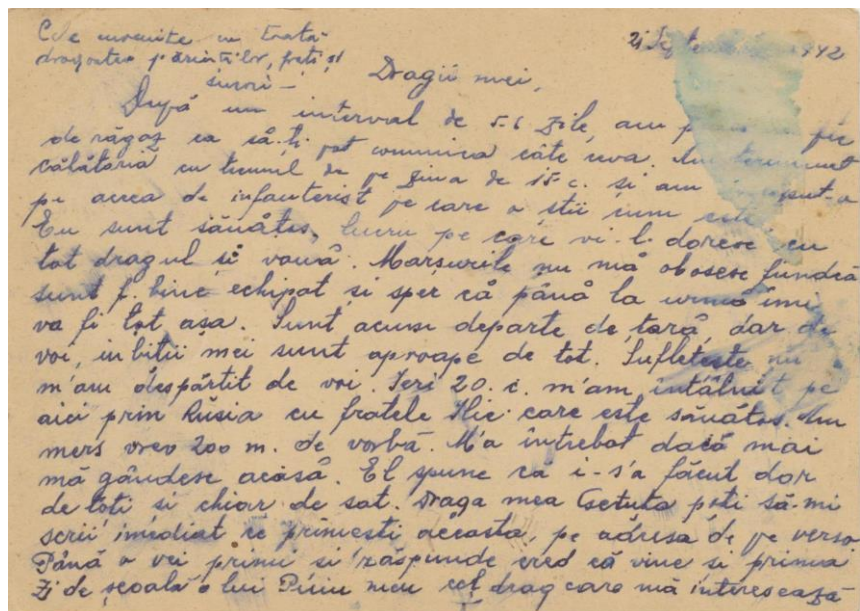 Cele cuvenite cu toată
dragostea părinților, frați și
surori -
21 Septembrie 1942
Dragii mei,
După un interval de 5-6 zile, am
de răgaz ca să-ți pot comunica câte ceva. Am terminat
călătoria cu trenul de pe ziua de 15 c. și am început-o
pe aceea de infanterist pe care o știi cum este.
Eu sunt sănătos, lucru pe care vi-l doresc cu
tot dragul și vouă. Marșurile nu mă obosesc fiindcă
sunt f. bine echipat și sper că până la urmă îmi
va fi tot așa. Sunt acuși departe de țară, dar de
voi, iubiții mei sunt aproape de tot. Sufletește nu
m'am despărțit de voi. Ieri 20. c. m'am întâlnit pe
aici prin Rusia cu fratele Ilie care este sănătos. Am
mers vreo 200 m. de vorbă. M'a întrebat dacă mai
mă gândesc acasă. El spune că i-s'a făcut dor
de toți și chiar de sat. Draga mea poți să-mi
scrii imediat ce primești aceasta, pe adresa de pe verso
Până o vei primi și răspunde cred că vine și prima
zi de școală a lui Puiu meu cel drag care mă interesează